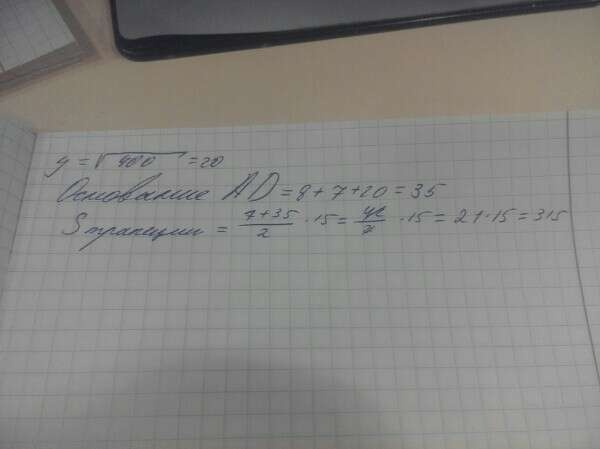 y = √400 = 20
Основание AD = 8 + 7 + 20 = 35
S трапеции = 7+35/2 · 15 = 42/2 · 15 = 21 · 15 = 315